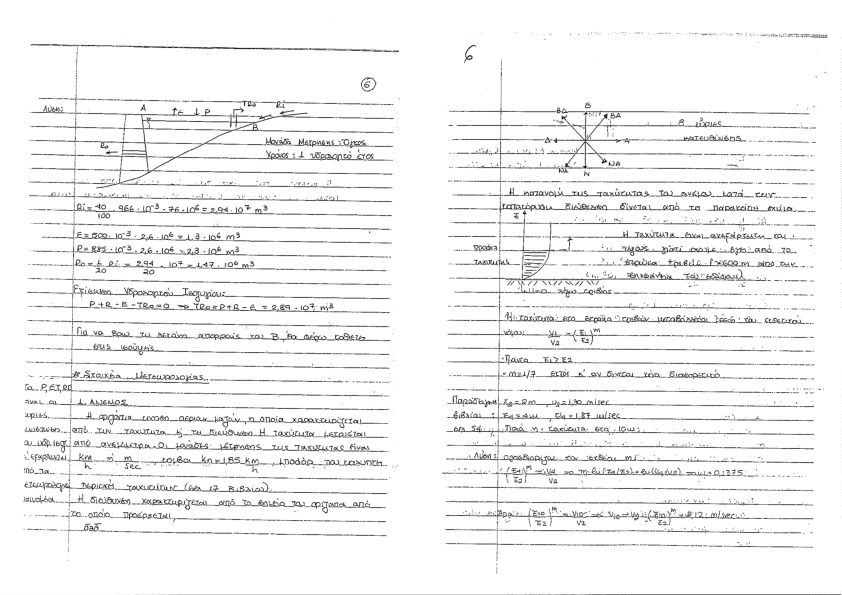 6
Λύση:
A
↑E ↓P
TRo
Ri
B
Ro
Μονάδα Μέτρησης: Όγκος
Χρόνος: 1 υδρολογικό έτος
Ri = 40/100 · 966 · 10⁻³ · 76 · 10⁶ = 2,94 · 10⁷ m³
E = 500 · 10⁻³ · 2,6 · 10⁶ = 1,3 · 10⁶ m³
P = 885 · 10⁻³ · 2,6 · 10⁶ = 2,3 · 10⁶ m³
Ro = 1/20 Ri = 2,94/20 · 10⁷ = 1,47 · 10⁶ m³
Εξίσωση Υδρολογικού Ισοζυγίου:
P + R - E - TRo = 0 ⇒ TRo = P + R - E = 2,89 · 10⁷ m³
Για να βρω τη λεκάνη απορροής του Β, θα φέρω κάθετες
στις ισοϋψείς.
* Στοιχεία Μετεωρολογίας
Τα P, E, T, Ro
είναι οι
1. ΑΝΕΜΟΣ
κύριες
Η οριζόντια κίνηση αέριων μαζών, η οποία χαρακτηρίζεται
από την ταχύτητα κ' τη διεύθυνση. Η ταχύτητα μετριέται
από ανεμόμετρα. Οι μονάδες μέτρησης της ταχύτητας είναι
km/h ή m/sec κόμβοι kn = 1,85 km/h, μποφόρ που καλύπτει
από τα
περιοχές ταχυτήτων (σελ 17 βιβλίου).
Η διεύθυνση χαρακτηρίζεται από το σημείο του ορίζοντα από
το οποίο προέρχεται,
6
B
ΒΔ
ΒΑ
Δ
Α
ΝΔ
ΝΑ
Ν
8 κύριες
κατευθύνσεις
Η κατανομή της ταχύτητας του ανέμου κατά την
κατακόρυφη διεύθυνση δίνεται από το παρακάτω σχήμα
z
Η ταχύτητα είναι ανεξάρτητη του
ύψους γιατί
από το
600m από την
επιφάνεια του εδάφους
προφίλ
ταχύτητας
u=0
Η ταχύτητα στο στρώμα τριβών μεταβάλλεται
νόμο: V₁/V₂ = (z₁/z₂)ᵐ
Πάντα z₁ > z₂
m = 1/7 εκτός κ' αν δίνεται κάτι διαφορετικό
Παράδειγμα z₂ = 2m, u₂ = 1,70 m/sec
βιβλίου: z₁ = 4m, u₁ = 1,87 m/sec
σελ 54. Ποιά η ταχύτητα στα 10m;
Λύση: προσδιορίζω τον εκθέτη m:
(z₁/z₂)ᵐ = V₄/V₂ ⇒ m ln(z₄/z₂) = ln(V₄/V₂) ⇒ m = 0,1375
(z₁₀/z₂)ᵐ = V₁₀/V₂ ⇒ V₁₀ = V₂ (z₁₀/z₂)ᵐ = 2,12 m/sec